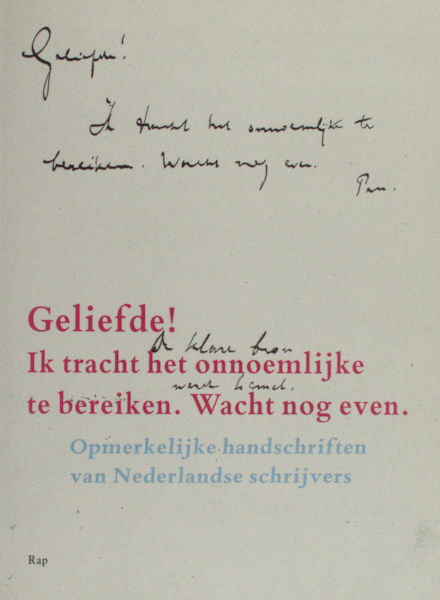 Geliefde!
Ik tracht het onnoemlijke te
bereiken. Wacht nog even.
Pan.
Geliefde!
De klare bron
Ik tracht het onnoemlijke
werd hemel.
te bereiken. Wacht nog even.
Opmerkelijke handschriften
van Nederlandse schrijvers
Rap